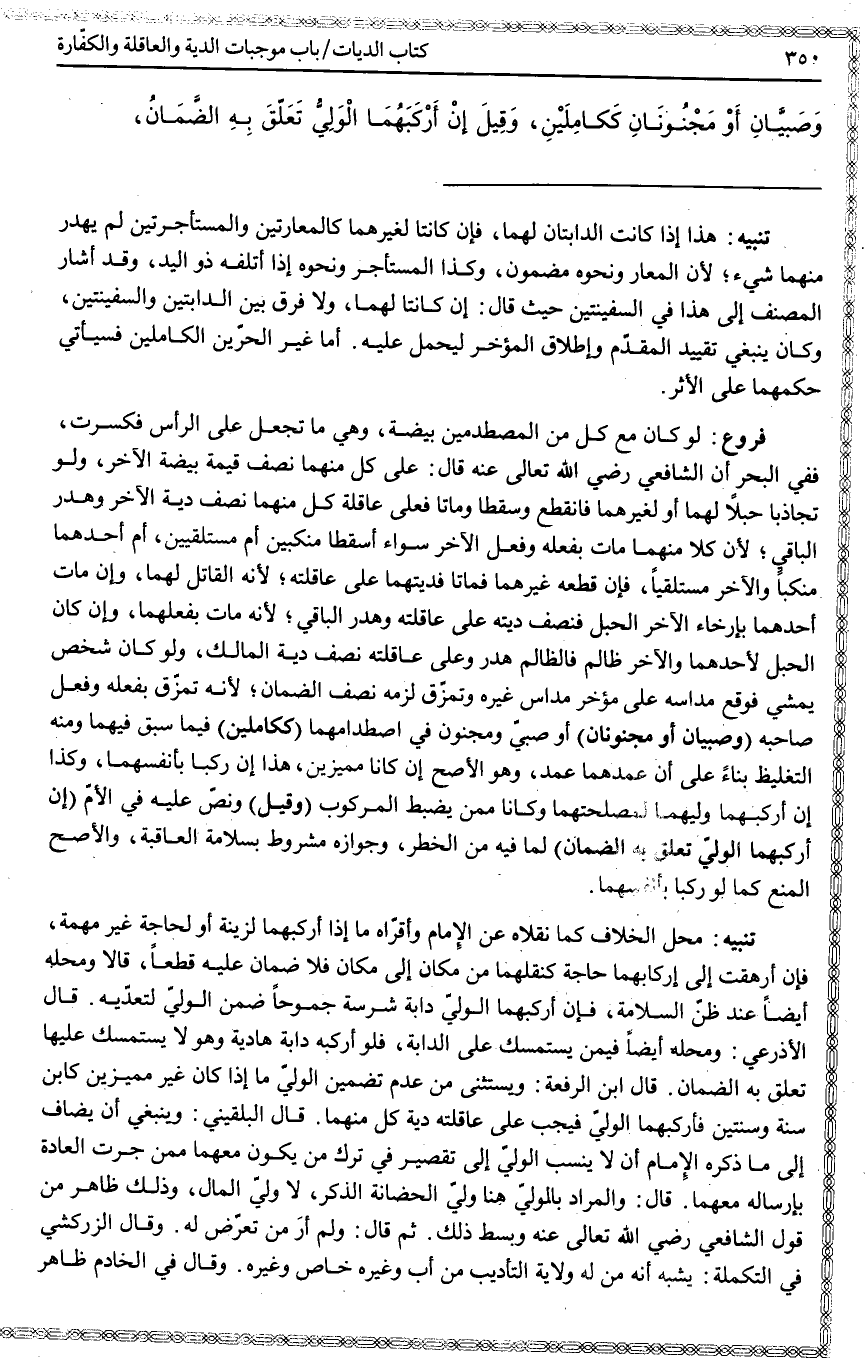 ٣٥٠ كتاب الديات/ باب موجبات الدية والعاقلة والكفّارة
وَصَبِيَّانِ أَوْ مَجْنُونَانِ كَكَامِلَيْنِ، وَقِيلَ إِنْ أَرْكَبَهُمَا الْوَلِيُّ تَعَلَّقَ بِهِ الضَّمَانُ،
تنبيه: هذا إذا كانت الدابتان لهما، فإن كانتا لغيرهما كالمعارتين والمستأجرتين لم يهدر
منهما شيء؛ لأن المعار ونحوه مضمون، وكذا المستأجر ونحوه إذا أتلفه ذو اليد، وقد أشار
المصنف إلى هذا في السفينتين حيث قال: إن كانتا لهما، ولا فرق بين الدابتين والسفينتين،
وكان ينبغي تقييد المقدّم وإطلاق المؤخر ليحمل عليه. أما غير الحرّين الكاملين فسيأتي
حكمهما على الأثر.
فروع: لو كان مع كل من المصطدمين بيضة، وهي ما تجعل على الرأس فكسرت،
ففي البحر أن الشافعي رضي الله تعالى عنه قال: على كل منهما نصف قيمة بيضة الآخر، ولو
تجاذبا حبلًا لهما أو لغيرهما فانقطع وسقطا وماتا فعلى عاقلة كل منهما نصف دية الآخر وهدر
الباقي؛ لأن كلا منهما مات بفعله وفعل الآخر سواء أسقطا منكبين أم مستلقيين، أم أحدهما
منكباً والآخر مستلقياً، فإن قطعه غيرهما فماتا فديتهما على عاقلته؛ لأنه القاتل لهما، وإن مات
أحدهما بإرخاء الآخر الحبل فنصف ديته على عاقلته وهدر الباقي؛ لأنه مات بفعلهما، وإن كان
الحبل لأحدهما والآخر ظالم فالظالم هدر وعلى عاقلته نصف دية المالك، ولو كان شخص
يمشي فوقع مداسه على مؤخر مداس غيره وتمزق لزمه نصف الضمان؛ لأنه تمزّق بفعله وفعل
صاحبه (وصبيان أو مجنونان) أو صبيّ ومجنون في اصطدامهما (ككاملين) فيما سبق فيهما ومنه
التغليظ بناءً على أن عمدهما عمد، وهو الأصح إن كانا مميزين، هذا إن ركبا بأنفسهما، وكذا
إن أركبهما وليهما لمصلحتهما وكانا ممن يضبط المركوب (وقيل) ونصّ عليه في الأمّ (إن
أركبهما الوليّ تعلق به الضمان) لما فيه من الخطر، وجوازه مشروط بسلامة العاقبة، والأصح
المنع كما لو ركبا بأنفسهما.
تنبيه: محل الخلاف كما نقلاه عن الإمام وأقرّاه ما إذا أركبهما لزينة أو لحاجة غير مهمة،
فإن أرهقت إلى إركابهما حاجة كنقلهما من مكان إلى مكان فلا ضمان عليه قطعاً، قالا ومحله
أيضاً عند ظنّ السلامة، فإن أركبهما الوليّ دابة شرسة جموحاً ضمن الوليّ لتعدّيه. قال
الأذرعي: ومحله أيضاً فيمن يستمسك على الدابة، فلو أركبه دابة هادية وهو لا يستمسك عليها
تعلق به الضمان. قال ابن الرفعة: ويستثنى من عدم تضمين الوليّ ما إذا كان غير مميزين كابن
سنة وسنتين فأركبهما الوليّ فيجب على عاقلته دية كل منهما. قال البلقيني: وينبغي أن يضاف
إلى ما ذكره الإمام أن لا ينسب الوليّ إلى تقصير في ترك من يكون معهما ممن جرت العادة
بإرساله معهما. قال: والمراد بالوليّ هنا وليّ الحضانة الذكر، لا وليّ المال، وذلك ظاهر من
قول الشافعي رضي الله تعالى عنه وبسط ذلك. ثم قال: ولم أرَ من تعرّض له. وقال الزركشي
في التكملة: يشبه أنه من له ولاية التأديب من أب وغيره خاص وغيره. وقال في الخادم ظاهر